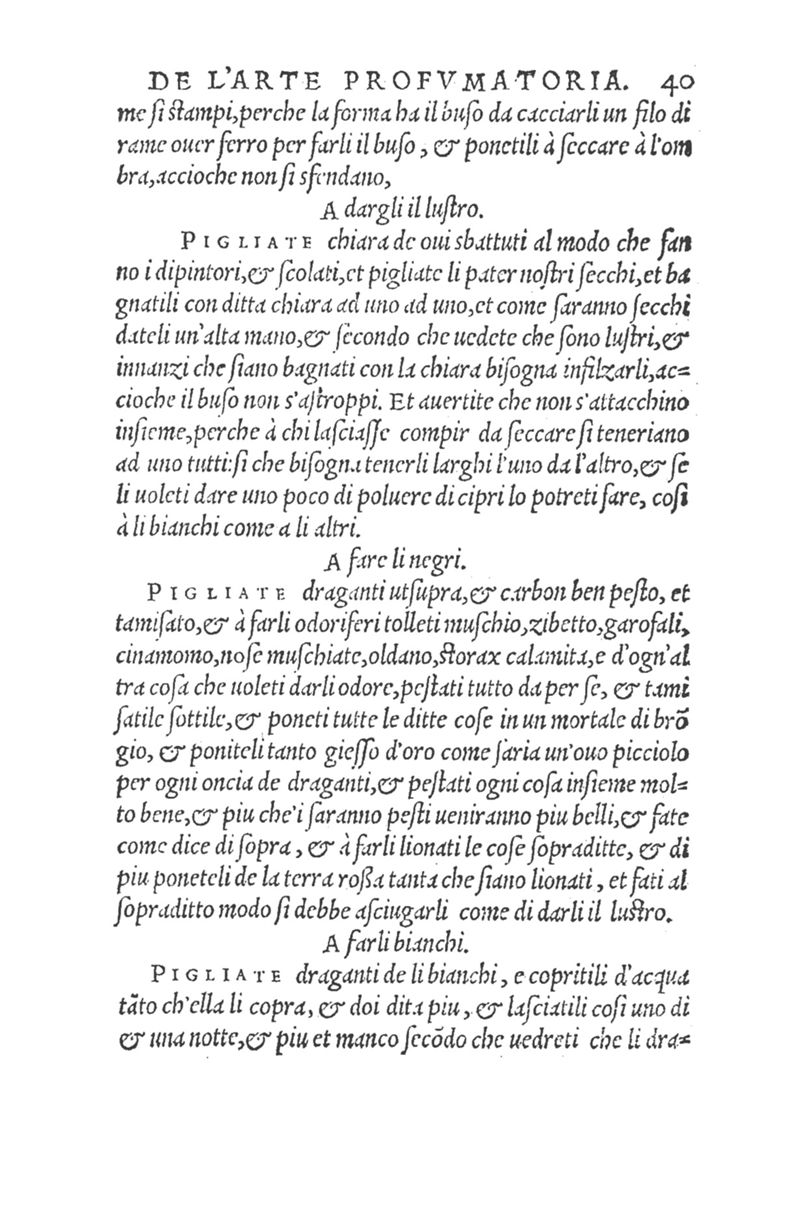 DE L'ARTE PROFVMATORIA. 40
me si stampi,perche la forma ha il buso da cacciarli un filo di
rame ouer ferro per farli il buso , & ponetili à seccare à l'om
bra,accioche non si sfendano,
A dargli il lustro.
PIGLIATE chiara de oui sbattuti al modo che fan
no i dipintori,& scolati,et pigliate li pater nostri secchi,et ba
gnatili con ditta chiara ad uno ad uno,et come saranno secchi
dateli un'alta mano,& secondo che uedete che sono lustri,&
innanzi che siano bagnati con la chiara bisogna infilzarli,ac=
cioche il buso non s'astroppi. Et auertite che non s'attacchino
insieme,perche à chi lasciasse compir da seccare si teneriano
ad uno tutti:si che bisogna tenerli larghi l'uno da l'altro,& se
li uoleti dare uno poco di poluere di cipri lo potreti fare, cosi
à li bianchi come a li altri.
A fare li negri.
PIGLIATE draganti utsupra,& carbon ben pesto, et
tamisato,& à farli odoriferi tolleti muschio,zibetto,garofali,
cinamomo,nose muschiate,oldano,storax calamita,e d'ogn'al
tra cosa che uoleti darli odore,pestati tutto da per se, & tami
satile sottile,& poneti tutte le ditte cose in un mortale di brõ
gio, & poniteli tanto giesso d'oro come saria un'ouo picciolo
per ogni oncia de draganti,& pestati ogni cosa insieme mol=
to bene,& piu che'i saranno pesti ueniranno piu belli,& fate
come dice di sopra , & à farli lionati le cose sopraditte, & di
piu poneteli de la terra rossa tanta che siano lionati , et fati al
sopraditto modo si debbe asciugarli come di darli il lustro.
A farli bianchi.
PIGLIATE draganti de li bianchi , e copritili d'acqua
tãto ch'ella li copra, & doi dita piu , & lasciatili cosi uno di
& una notte,& piu et manco secõdo che uedreti che li dra=